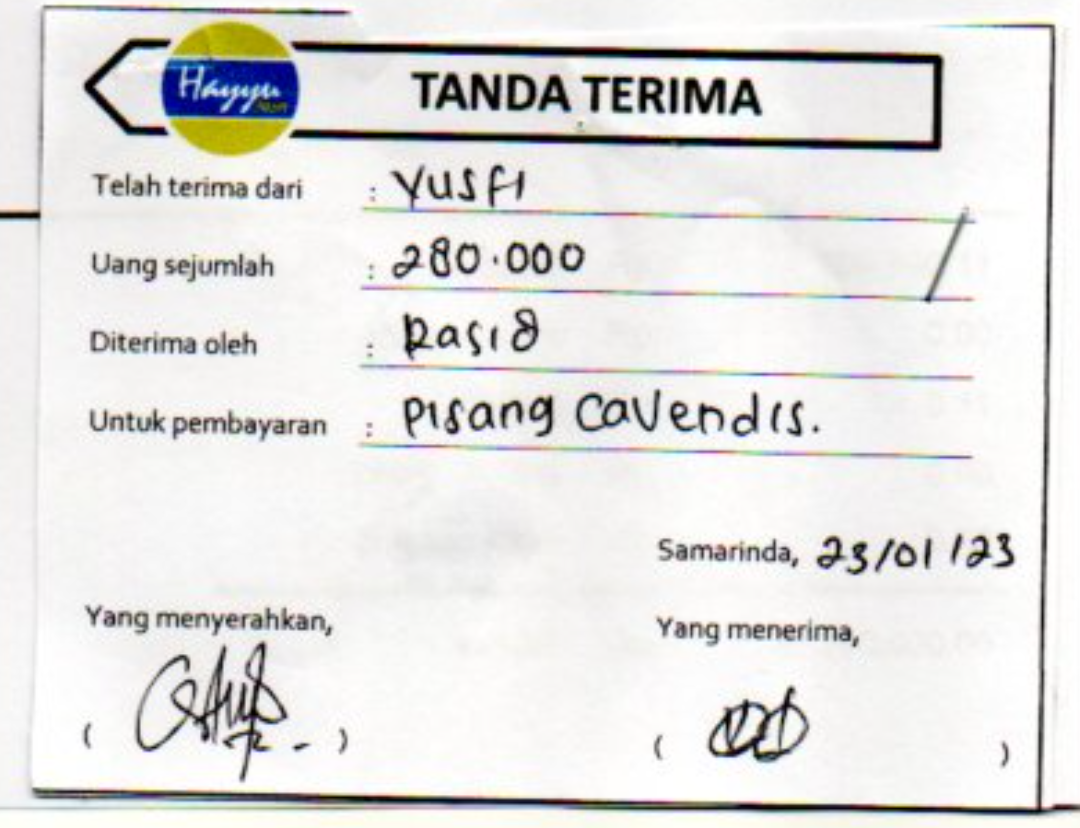 Hayyu
TANDA TERIMA
Telah terima dari : YUSFI
Uang sejumlah : 280.000
Diterima oleh : Rasid
Untuk pembayaran : Pisang Cavendis.
Samarinda, 23/01/23
Yang menyerahkan,
Yang menerima,